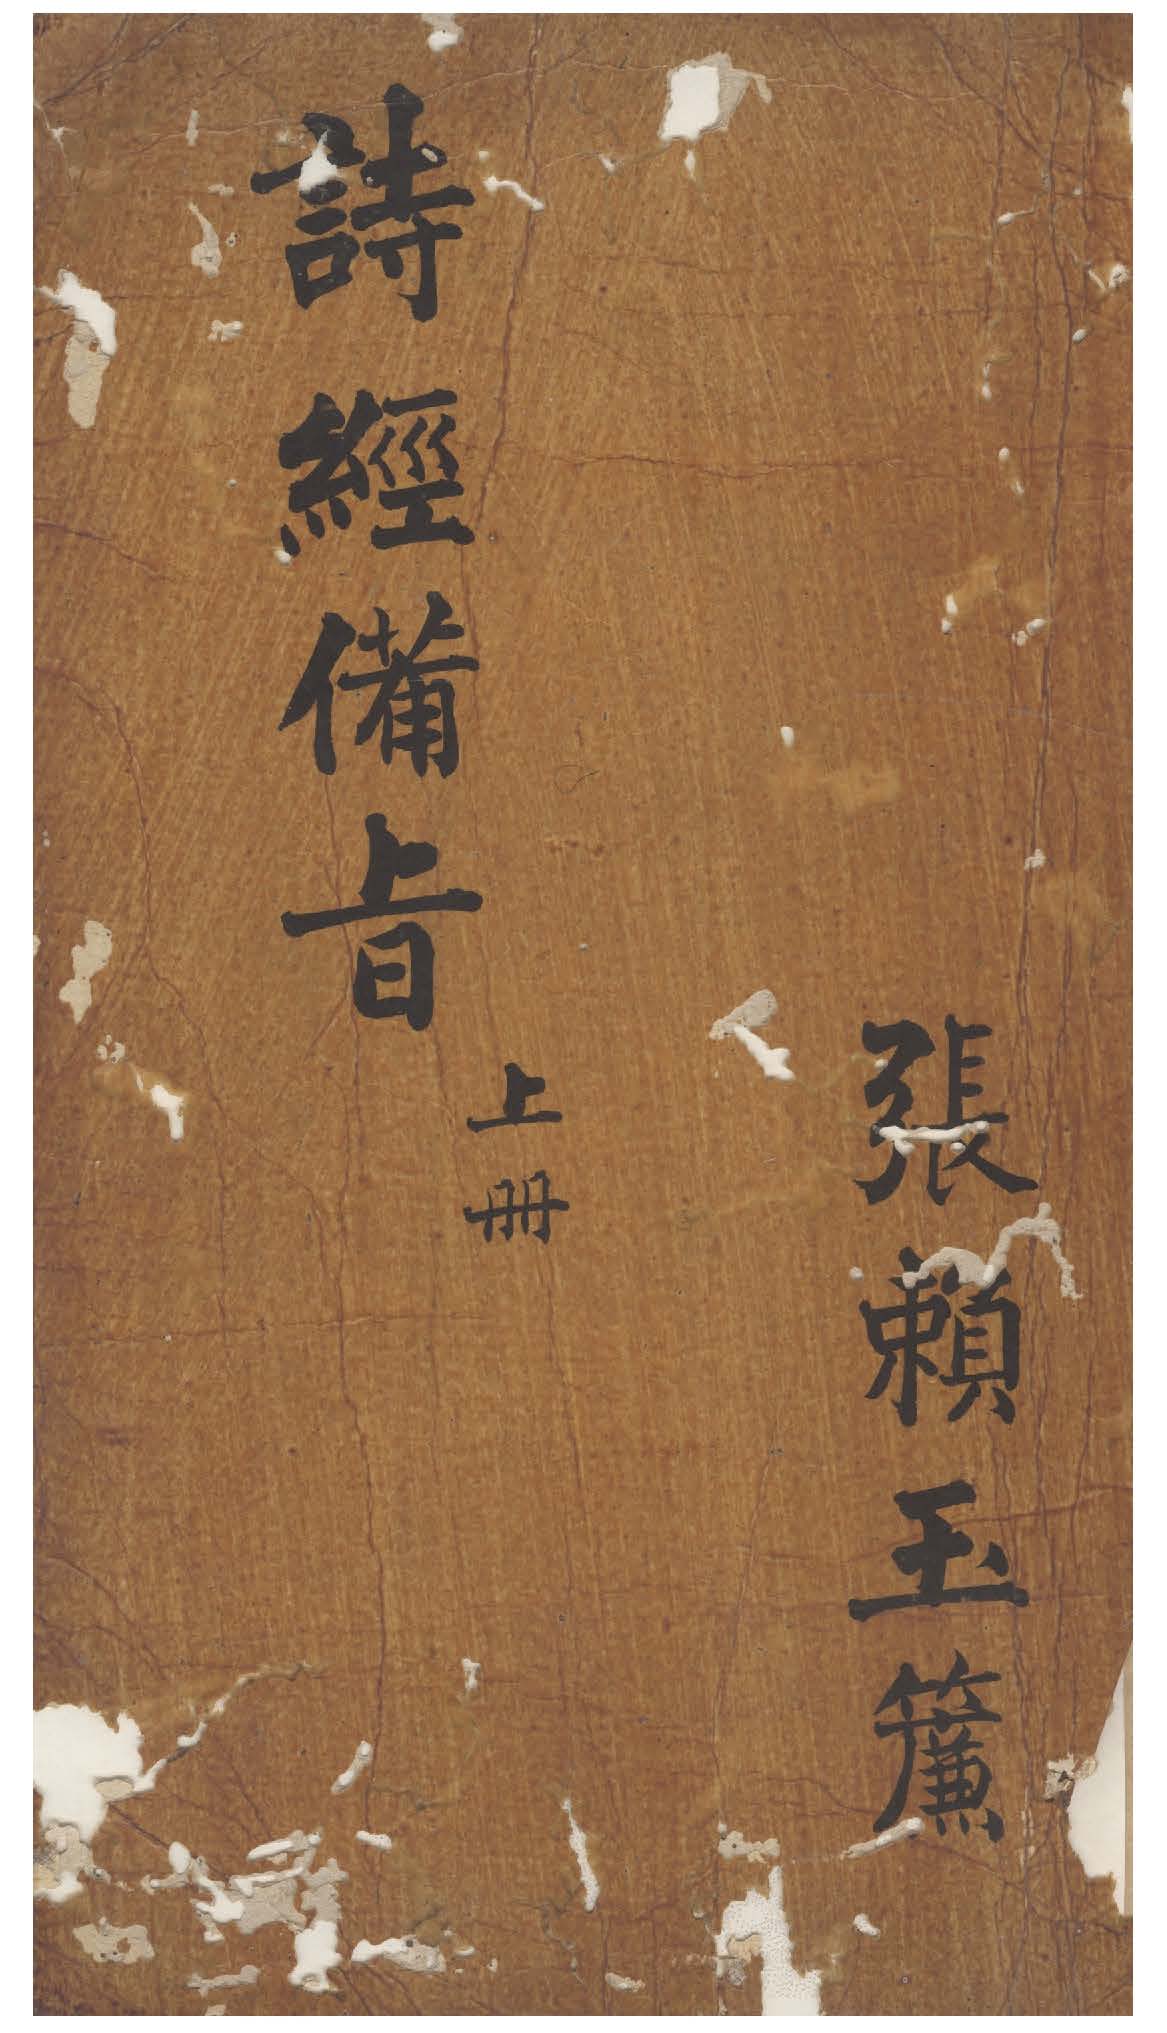 張賴玉簾
上冊
詩經備旨